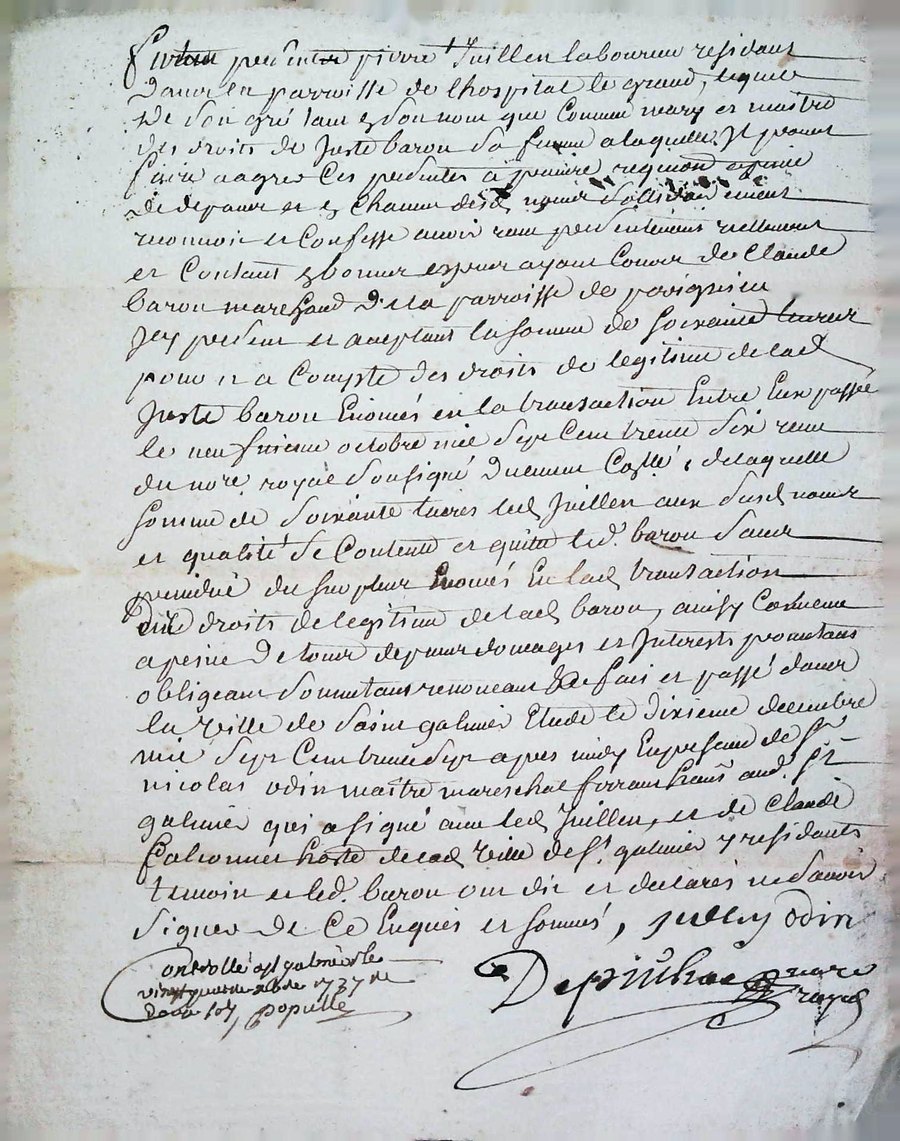 pierre Juillen laboureur residant
dans la parroisse de lhospital le grand, lequel
de son gré tant a son nom que comme mary et maitre
des droits de Juste baron sa femme a laquelle Il promet
faire agreer ces presentes a premiere requisition a peine
de depans et a chacun desd noms sollidairement
reconnoit et Confesse avoir receu presentement reellement
et Contant de Claude
baron marchand de la parroisse de
Jcy present et aceptant la somme de soixante livres
pour et a Compte des droits de legitime de lad
Juste baron Enoncés en la transaction Entre Eux passée
le neufvieme octobre mil sept Cent trente six receue
du nore royal soussigné , de laquelle
somme de soixante livres led Juillen aux susd noms
et qualité se Contente et quitte led. baron sans
prejudice du surplus Enoncés En lad transaction
droits de legitime de lad baron, ainsy Convenu
a peine de tous depans domages et Interests promettans
obligeans soumettans renonceans &a fait et passé dans
la ville de saint galmier Etude le dixieme decembre
mil sept Cent trente sept apres midy En presence de sr
nicolas odin maitre mareschal ferrant aud. st
galmier qui a signé avec led Juillen, et de Claude
hoste de lad ville de st. galmier y residants
temoin et led. baron ont dit et declarés ne savoir
signer de Ce Enquis et sommés, Jullien odin
nore
royal
Controllé a st galmier le
vingt quatre xbre 1737 Reçu
douze sols